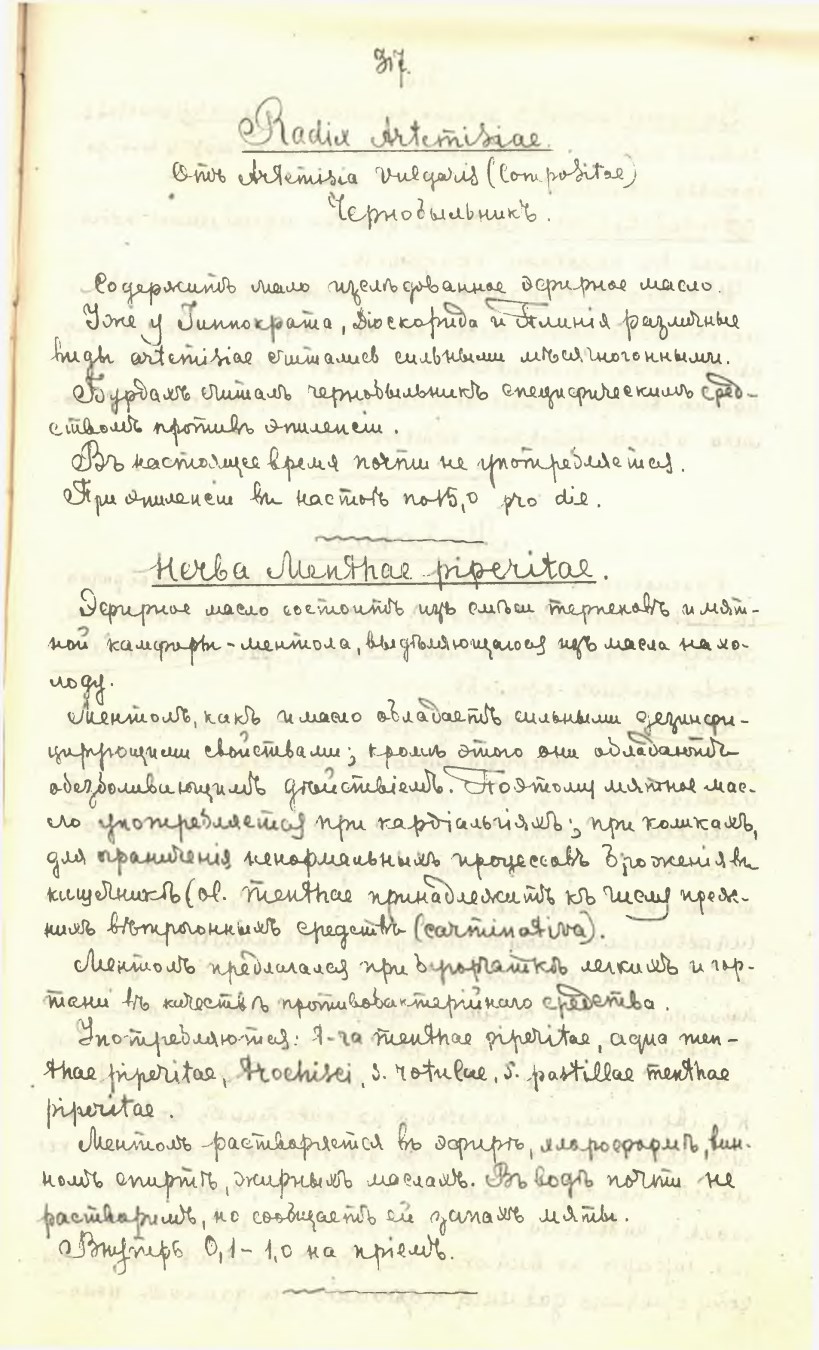 317.
Radix Artemisiae.
Отъ Artemisia vulgaris (Compositae)
Чернобыльникъ.
Содержитъ мало изслѣдованное эфирное масло.
Уже у Гиппократа, Діоскорида и Плинія различные
виды artemisiae считались сильными мѣсячногонными.
Бурдахъ считалъ чернобыльникъ специфическимъ сред-
ствомъ противъ эпилепсіи.
Въ настоящее время почти не употребляется.
При эпилепсіи въ настоѣ по 15,0 pro die.
Herba Menthae piperitae.
Эфирное масло состоитъ изъ смѣси терпеновъ и мят-
ной камфоры-ментола, выдѣляющагося изъ масла на хо-
лоду.
Ментолъ, какъ и масло обладаетъ сильными дезинфи-
цирующими свойствами; кромѣ этого они обладаютъ
обезболивающимъ дѣйствіемъ. Поэтому мятное мас-
ло употребляется при кардіальгіяхъ; при коликахъ,
для ограниченія ненормальныхъ процессовъ броженія въ
кишечникѣ (ol. menthae принадлежитъ къ числу преж-
нихъ вѣтрогонныхъ средствъ (carminativa).
Ментолъ предлагался при бугорчаткѣ легкихъ и гор-
тани въ качествѣ противобактерійнаго средства.
Употребляются: t-ra menthae piperitae, aqua men-
thae piperitae, trochisci, s. rotulae, s. pastillae menthae
piperitae.
Ментолъ растворяется въ эфирѣ, хлороформѣ, вин-
номъ спиртѣ, жирныхъ маслахъ. Въ водѣ почти не
растворимъ, но сообщаетъ ей запахъ мяты.
Внутрь 0,1-1,0 на пріемъ.